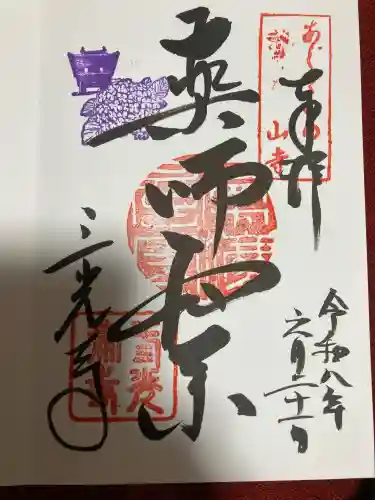 奉拝
あじさいの
山寺
薬師如来
三光寺
令和八年
六月二十一日